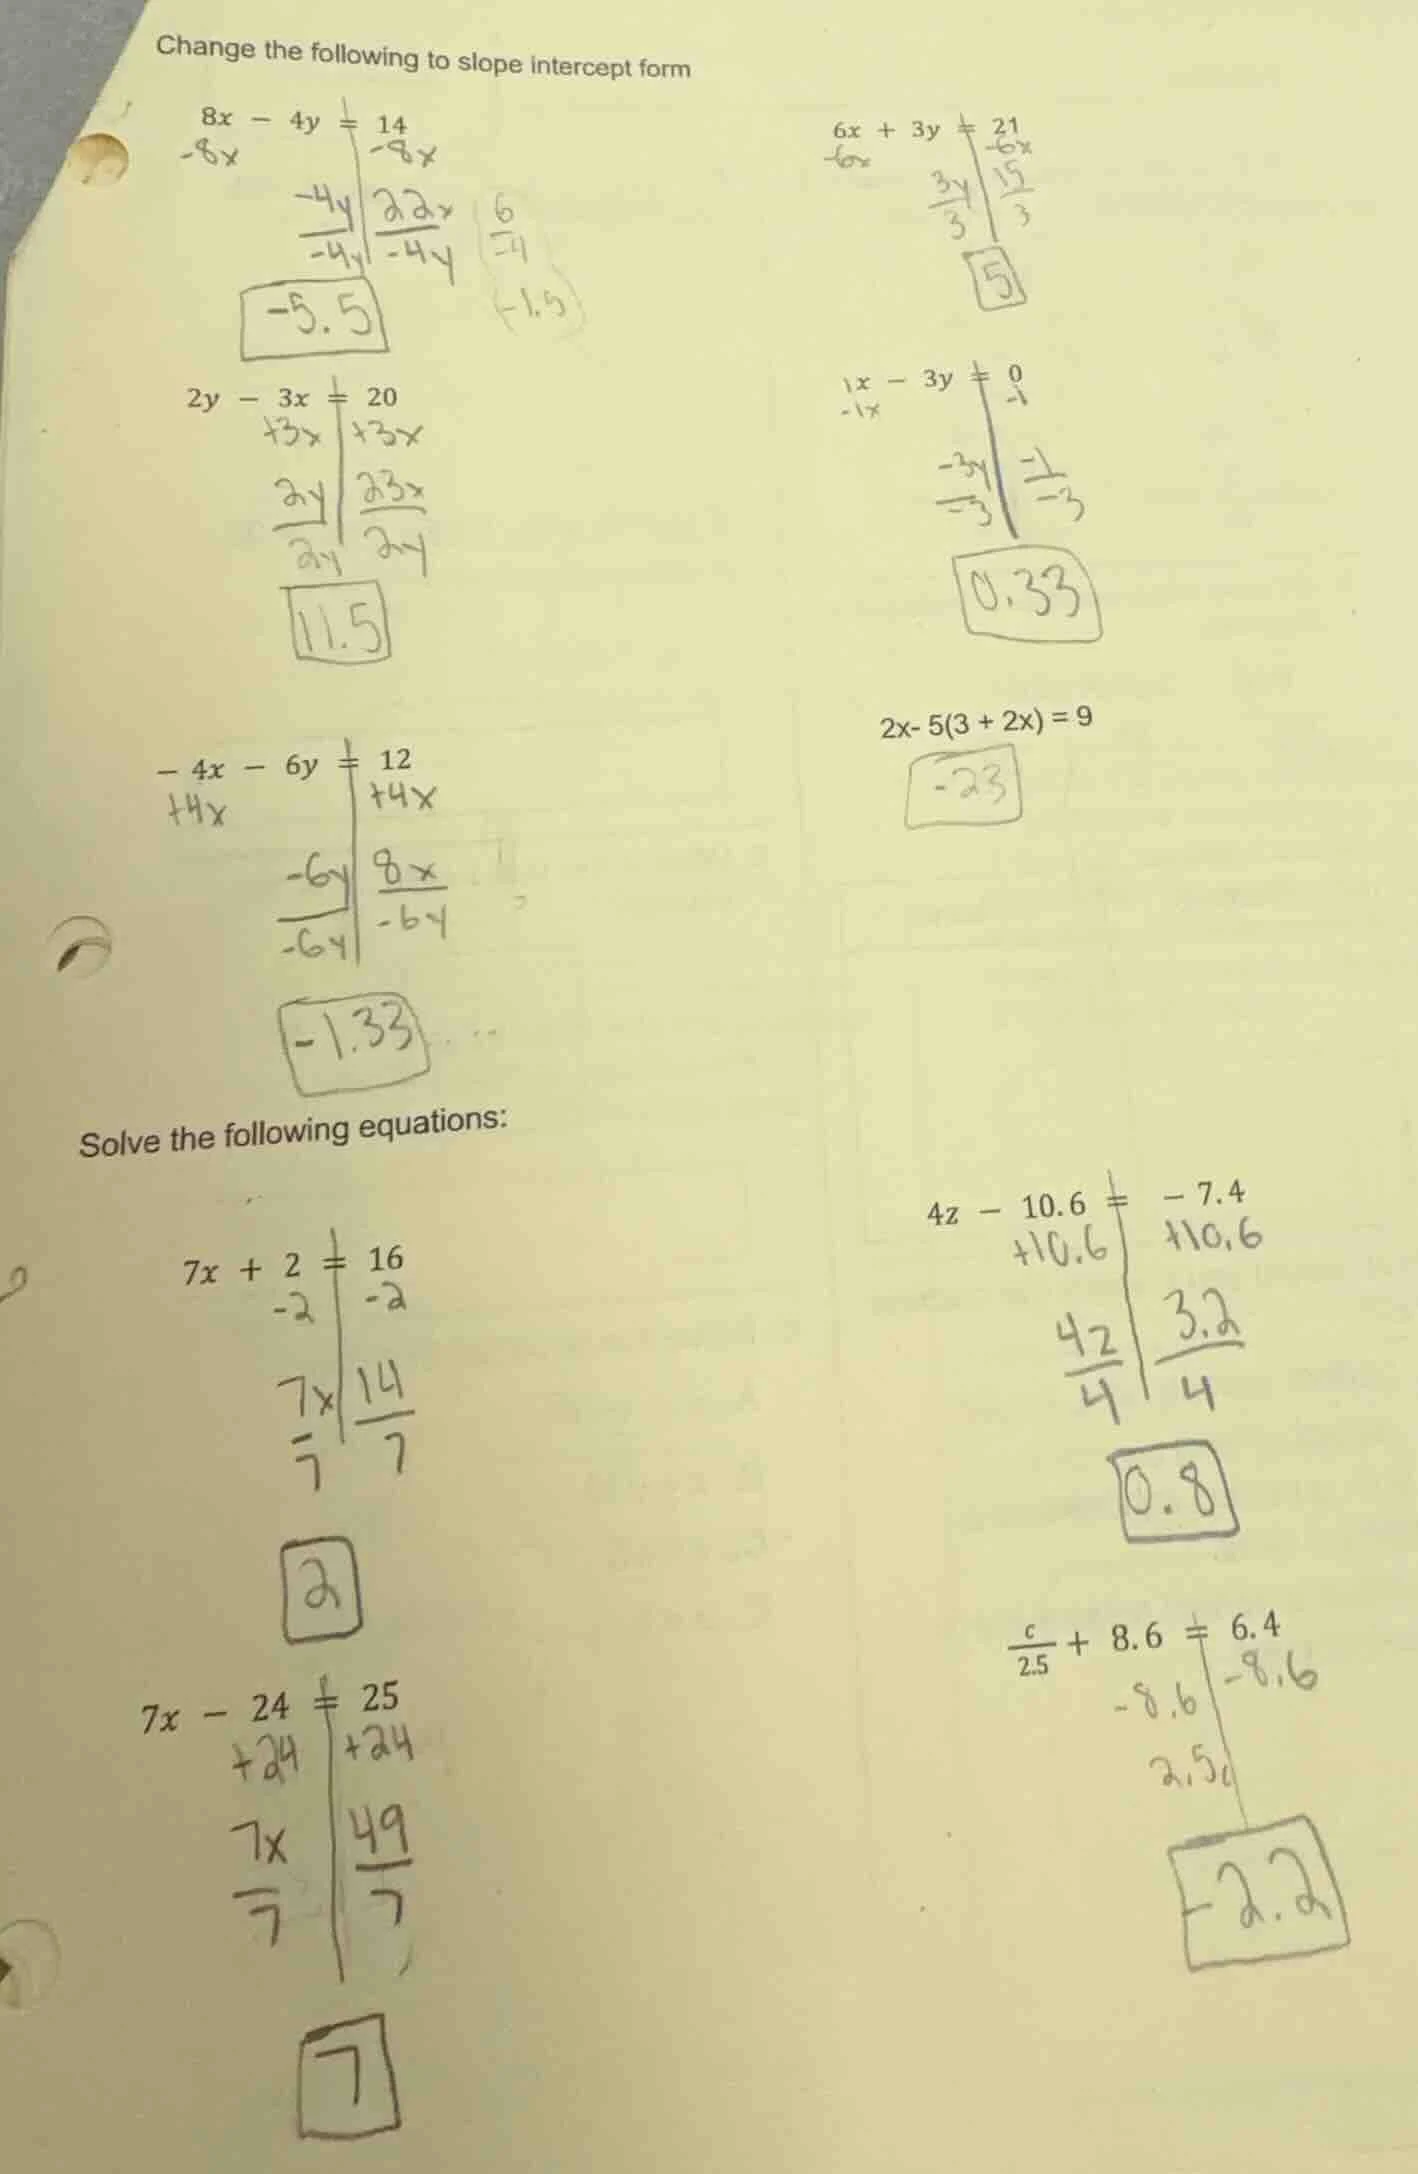 Change the following to slope intercept form
8x - 4y = 14
-8x -8x
-4y 22x 6
-4y -4y -4
-5.5 -1.5
6x + 3y = 21
-6x -6x
3y 15
3 3
5
2y - 3x = 20
+3x +3x
2y 23x
2y 2y
11.5
1x - 3y = 0
-1x -1
-3y -1
-3 -3
0.33
- 4x - 6y = 12
+4x +4x
-6y 8x
-6y -6y
-1.33
2x- 5(3 + 2x) = 9
-23
Solve the following equations:
7x + 2 = 16
-2 -2
7x 14
7 7
2
4z - 10.6 = - 7.4
+10.6 +10.6
4z 3.2
4 4
0.8
7x - 24 = 25
+24 +24
7x 49
7 7
7
c
2.5 + 8.6 = 6.4
-8.6 -8.6
2.5c
-2.2